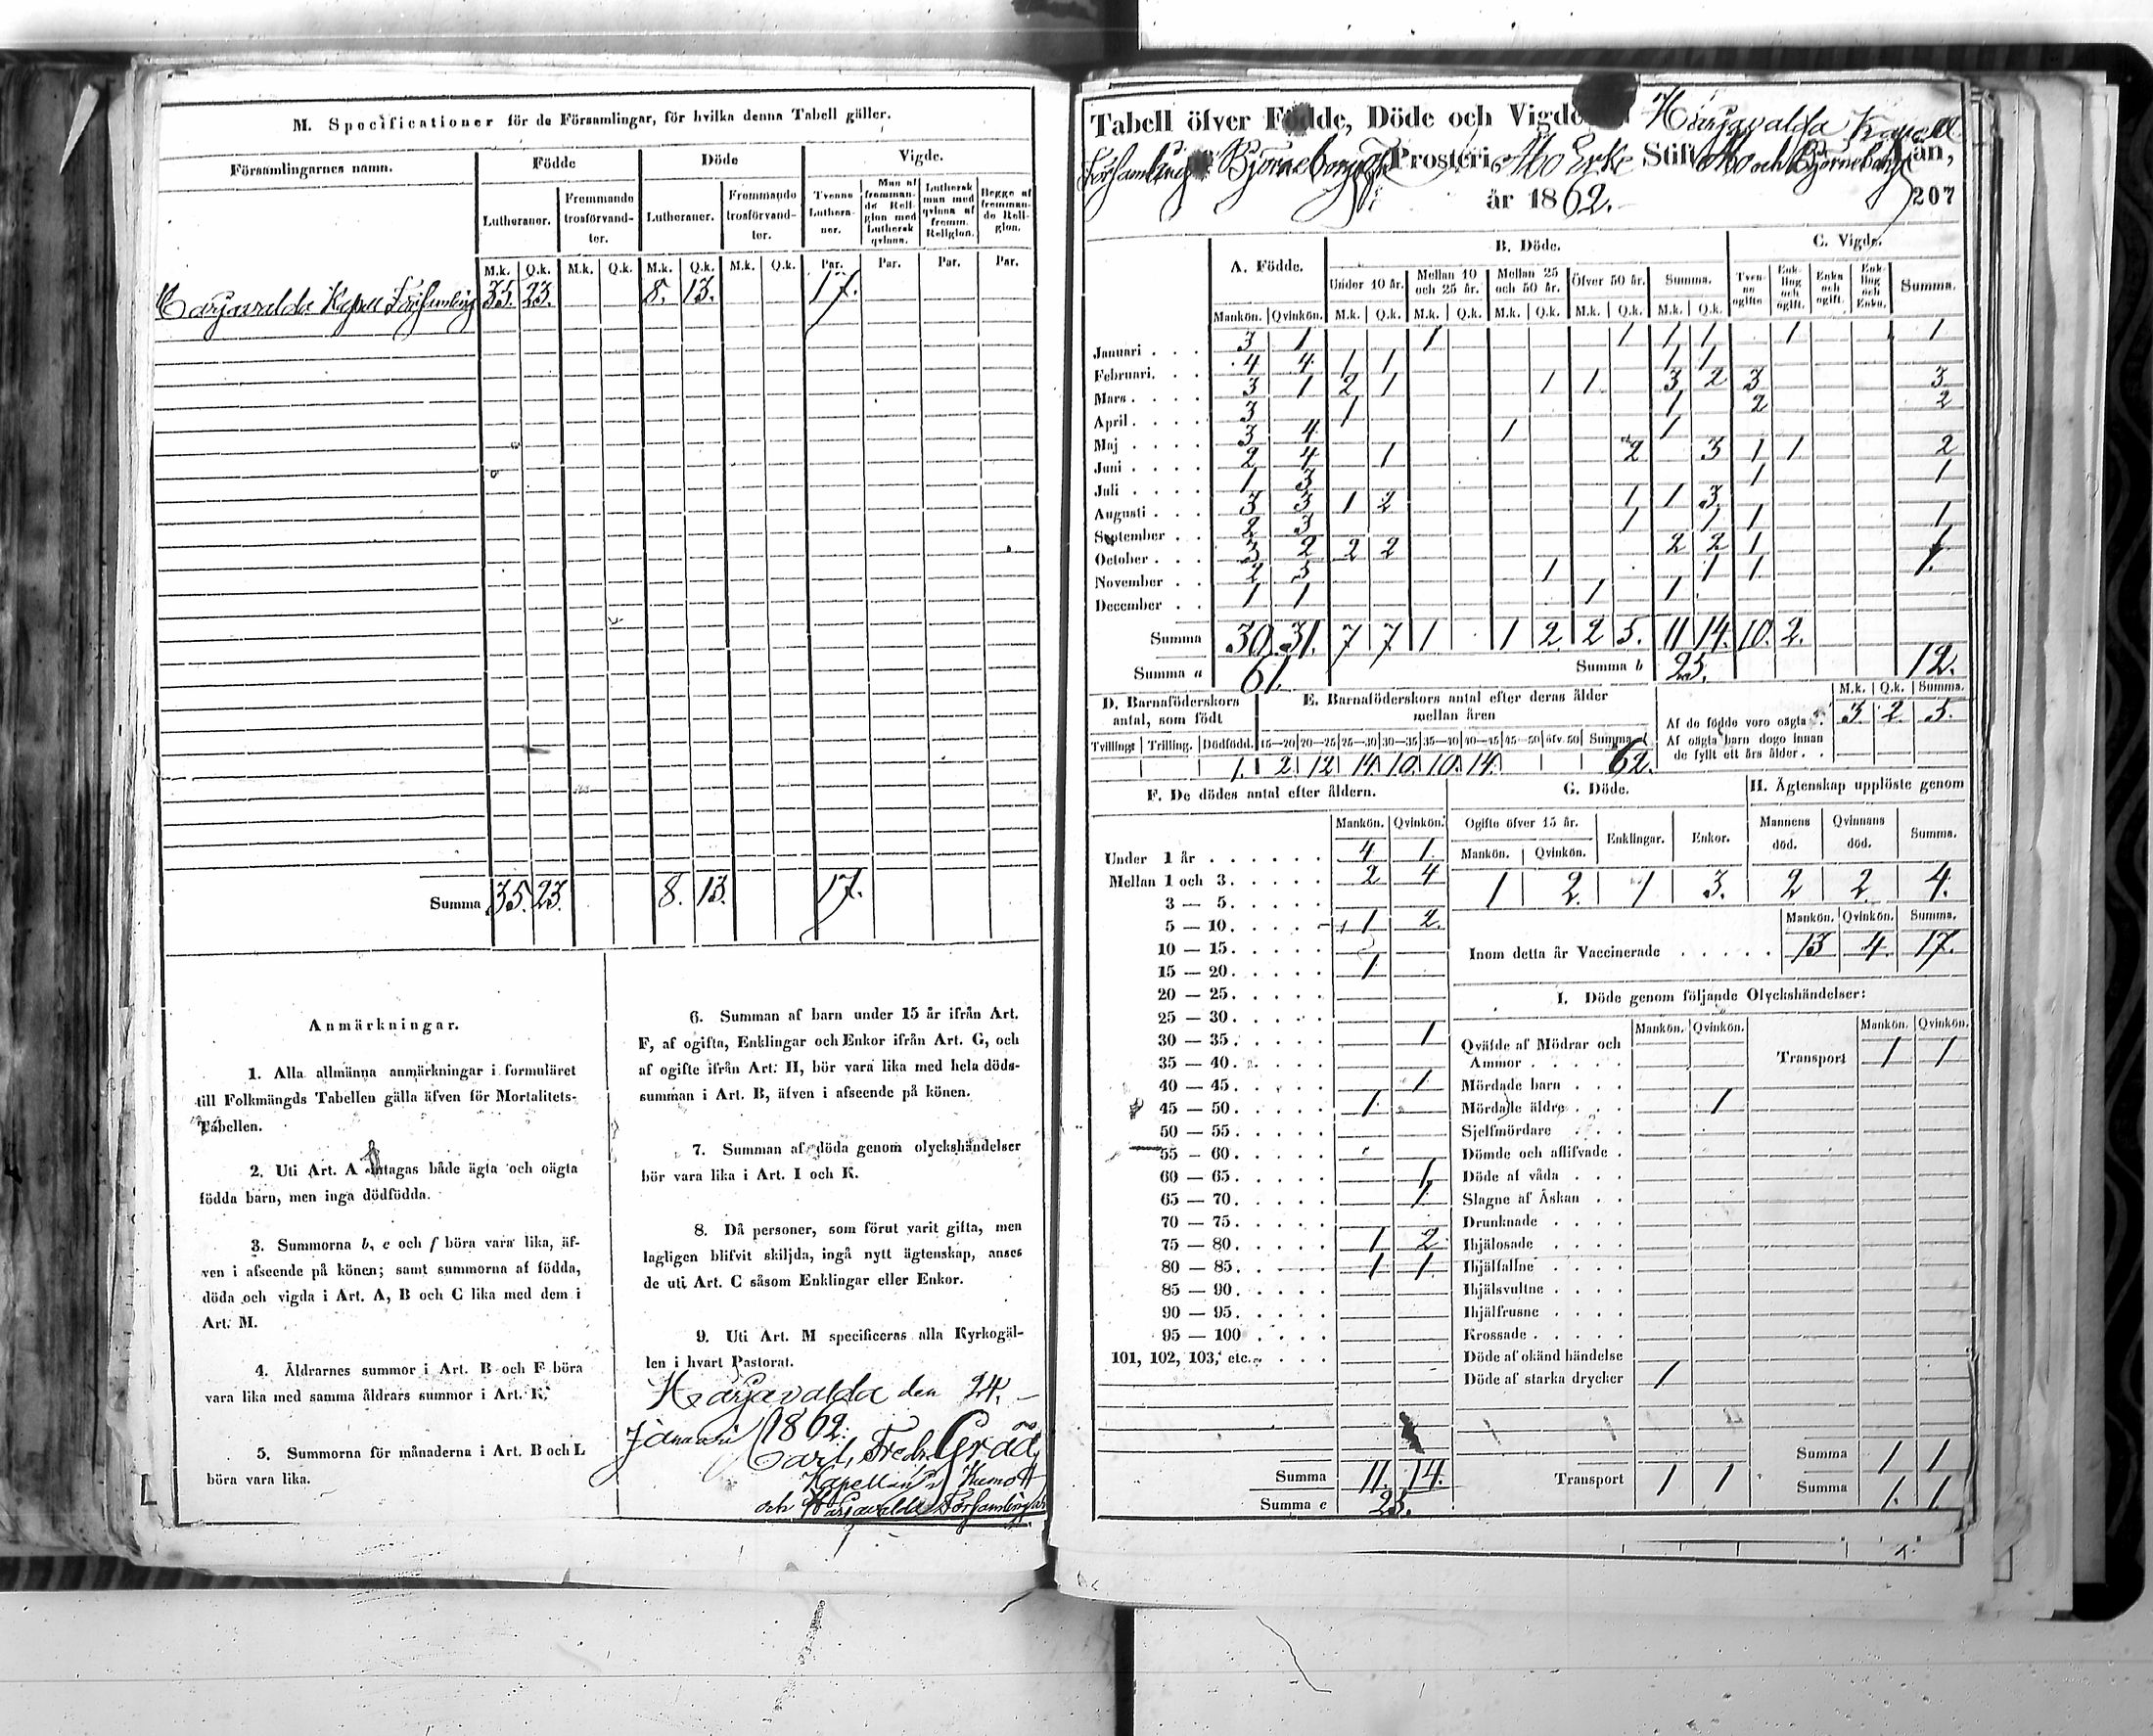 M. Specificationer för de Församlingar, för hvilka denna Tabell gäller.
Församlingarnes namn. Födde Döde Vigde.
Lutheraner. Fremmande trosförvandter. Lutheraner. Fremmande trosförvandter. Tvenne Lutheraner. Man af fremmande Religion med Luthersk qvinna. Luthersk man med qvinna af fremm. Religion. Begge af fremmande Religion.
M.k. Q.k. M.k. Q.k. M.k. Q.k. M.k. Q.k. Par. Par. Par. Par.
Harjavalda Kapell Församling 35. 23. 8. 13. 17.
Summa 35. 23. 8. 13. 17.
Anmärkningar.
1. Alla allmänna anmärkningar i formuläret
till Folkmängds Tabellen gälla äfven för Mortalitets-
Tabellen.
2. Uti Art. A intagas både ägta och oägta
födda barn, men inga dödfödda.
3. Summorna b, e och f böra vara lika, äf-
ven i afseende på könen; samt summorna af födda,
döda och vigda i Art. A, B och C lika med dem i
Art. M.
4. Åldrarnes summor i Art. B och F böra
vara lika med samma åldrars summor i Art. K.
5. Summorna för månaderna i Art. B och L
böra vara lika.
6. Summan af barn under 15 år ifrån Art.
F, af ogifta, Enklingar och Enkor ifrån Art. G, och
af ogifte ifrån Art. H, bör vara lika med hela döds-
summan i Art. B, äfven i afseende på könen.
7. Summan af döda genom olyckshändelser
bör vara lika i Art. I och K.
8. Då personer, som förut varit gifta, men
lagligen blifvit skiljda, ingå nytt ägtenskap, anses
de uti Art. C såsom Enklingar eller Enkor.
9. Uti Art. M specificeras alla Kyrkogäl-
len i hvart Pastorat.
Harjavalda den 24.
Januari 1862.
Carl Fredr.
Kapellan i Kumo
och Harjavalda Församlingar
Tabell öfver Födde, Döde och Vigde Harjavalda Kapell
Församling Björneborgs Prosteri Åbo Erke Stift Åbo och Björneborgs Län,
år 1862.
207
A. Födde. B. Döde. C. Vigde.
Under 10 år. Mellan 10 och 25 år. Mellan 25 och 50 år. Öfver 50 år. Summa. Tvenne ogifte Enkling och ogift. Enka och ogift. Enkling och Enka. Summa.
Mankön. Qvinkön. M.k. Q.k. M.k. Q.k. M.k. Q.k. M.k. Q.k. M.k. Q.k.
Januari 3 1 1 1 1 1 1 1
Februari. 4 4 1 1 1 1
Mars 3 1 2 1 1 1 3 2 3 3
April 3 1 1 2 2
Maj 3 4 1 1
Juni 2 4 1 2 3 1 1 2
Juli 1 3 1 1
Augusti 3 3 1 2 1 1 3
September 2 3 1 1 1 1
October 3 2 2 2 2 2 1 1
November 2 5 1 1 1 1.
December 1 1 1 1
Summa 30. 31. 7 7 1 1 2 2 5. 11 14. 10. 2.
Summa a 61. Summa b 25. 12.
D. Barnaföderskors antal, som födt
Tvilling. Trilling. Dödfödd.
1.
E. Barnaföderskors antal efter deras ålder mellan åren
15—20 20—25 25—30 30—35 35—40 40—45 45—50 öfv. 50 Summa
2 12 14 10. 10. 14. 62.
M.k. Q.k. Summa.
Af de födde voro oägta 3 2 5.
Af oägta barn dogo innan
de fyllt ett års ålder
F. De dödes antal efter åldern.
Mankön. Qvinkön.
Under 1 år 4 1
Mellan 1 och 3. 2 4
3 — 5.
5 — 10. 1 2.
10 — 15.
15 — 20. 1
20 — 25.
25 — 30.
30 — 35. 1
35 — 40.
40 — 45. 1
45 — 50. 1
50 — 55.
55 — 60.
60 — 65. 1
65 — 70. 1
70 — 75.
75 — 80. 1 2
80 — 85. 1 1
85 — 90.
90 — 95.
95 — 100
101, 102, 103, etc.
Summa 11. 14.
Summa e 25.
G. Döde.
Ogifte öfver 15 år. Enklingar. Enkor.
Mankön. Qvinkön.
1 2 1 3.
H. Ägtenskap upplöste genom
Mannens död. Qvinnans död. Summa.
2 2 4.
Mankön. Qvinkön. Summa.
Inom detta år Vaccinerade 13 4 17.
I. Döde genom följande Olyckshändelser:
Mankön. Qvinkön. Mankön. Qvinkön.
Qväfde af Mödrar och
Ammor
Transport 1 1
Mördade barn
Mördade äldre 1
Sjelfmördare
Dömde och aflifvade
Döde af våda
Slagne af Åskan
Drunknade
Ihjälosade
Ihjälfallne
Ihjälsvultne
Ihjälfrusne
Krossade
Döde af okänd händelse
Döde af starka drycker 1
Summa 1 1
Transport 1 1
Summa 1. 1